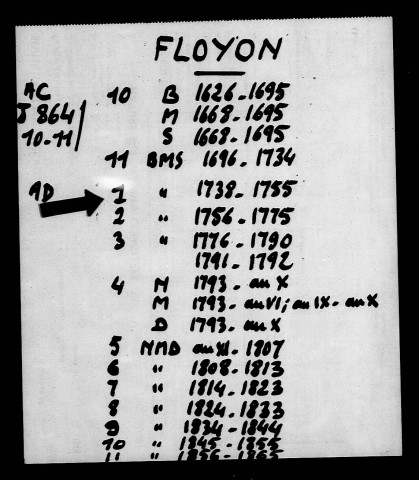 FLOYON
AC 10 B 1626-1695
J 864 M 1668-1695
10-11 S 1668-1695
11 BMS 1696-1734
AD 1 " 1738-1755
2 " 1756-1775
3 " 1776-1790
1791-1792
4 N 1793-an X
M 1793-an VI; an IX-an X
D 1793-an X
5 NMD an XI-1807
6 " 1808-1813
7 " 1814-1823
8 " 1824-1833
9 " 1834-1844
10 " 1845-1855
11 " 1856-1865